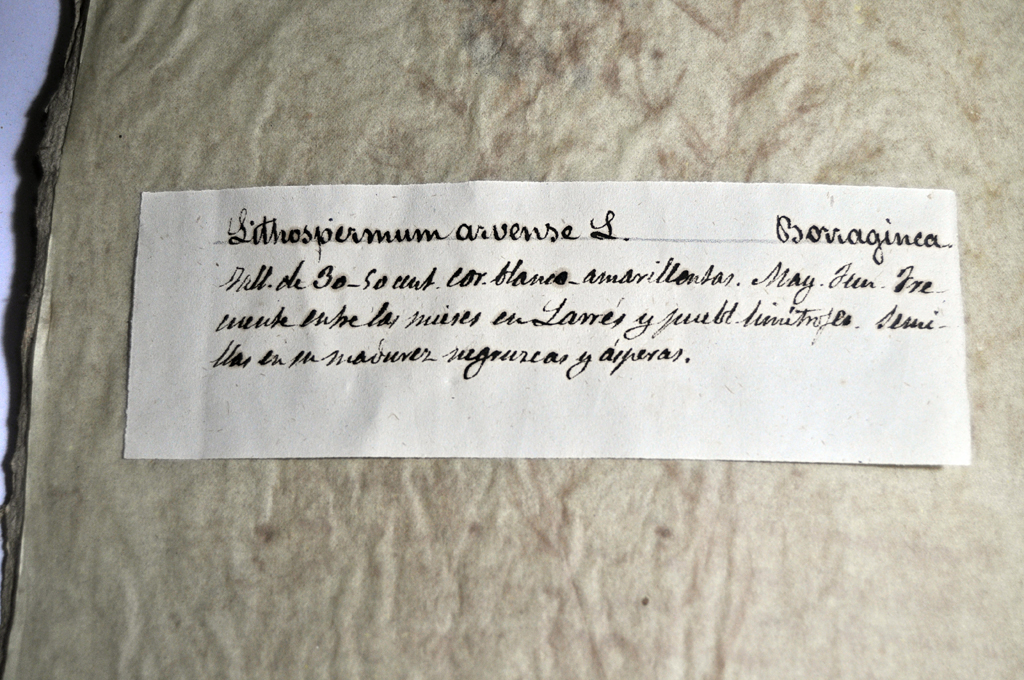 Lithospermum arvense L. Borraginea.
Tall. de 30-50 cent. cor. blanco-amarillentas. May. Jun. Fre-
cuente entre las mieses en Larrés y puebl. limítrofes. Semi-
llas en su madurez negruzcas y ásperas.